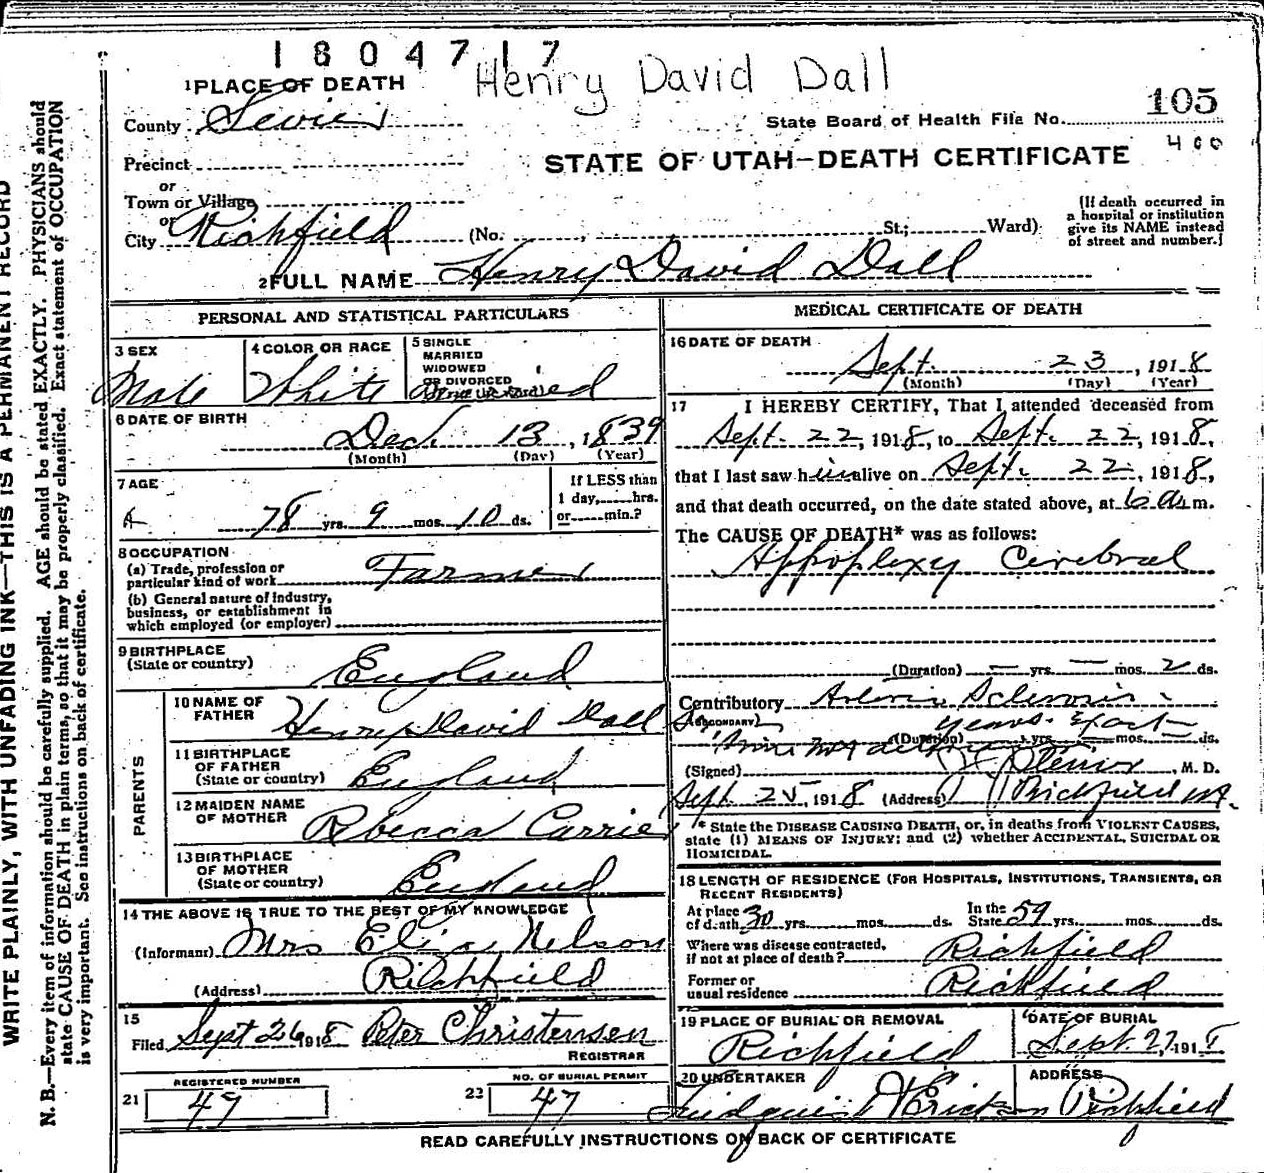 1804717
Henry David Dall
1 PLACE OF DEATH
105
County Sevier
State Board of Health File No.
400
Precinct
STATE OF UTAH—DEATH CERTIFICATE
or
Town or Village
or
City Richfield (No. , St.; Ward)
(If death occurred in
a hospital or institution
give its NAME instead
of street and number.)
2 FULL NAME Henry David Dall
PERSONAL AND STATISTICAL PARTICULARS
3 SEX
Male
4 COLOR OR RACE
White
5 SINGLE
MARRIED
WIDOWED
OR DIVORCED
6 DATE OF BIRTH
Dec. 13, 1839
(Month) (Day) (Year)
7 AGE
78 yrs. 9 mos. 10 ds.
If LESS than
1 day, hrs.
or min.?
8 OCCUPATION
(a) Trade, profession or
particular kind of work Farmer
(b) General nature of Industry,
business, or establishment in
which employed (or employer)
9 BIRTHPLACE
(State or country) England
PARENTS
10 NAME OF
FATHER Henry David Dall
11 BIRTHPLACE
OF FATHER
(State or country) England
12 MAIDEN NAME
OF MOTHER Rbecca Carrie
13 BIRTHPLACE
OF MOTHER
(State or country) England
14 THE ABOVE IS TRUE TO THE BEST OF MY KNOWLEDGE
(Informant) Mrs Eliza Nelson
(Address) Richfield
15
Filed Sept 26 1918 Peter Christensen
REGISTRAR
REGISTERED NUMBER
21 47
NO. OF BURIAL PERMIT
22 47
MEDICAL CERTIFICATE OF DEATH
16 DATE OF DEATH
Sept. 23, 1918
(Month) (Day) (Year)
17 I HEREBY CERTIFY, That I attended deceased from
Sept. 22, 1918, to Sept. 22, 1918,
that I last saw him alive on Sept. 22, 1918,
and that death occurred, on the date stated above, at 6 a. m.
The CAUSE OF DEATH* was as follows:
Appoplexy Cerebral
(Duration) — yrs. — mos. 2 ds.
Contributory
(SECONDARY)
years.
(Duration) yrs. — mos. — ds.
(Signed) , M. D.
Sept. 25, 1918 (Address) Richfield
* State the DISEASE CAUSING DEATH, or, in deaths from VIOLENT CAUSES,
state (1) MEANS OF INJURY; and (2) whether ACCIDENTAL, SUICIDAL OR
HOMICIDAL.
18 LENGTH OF RESIDENCE (FOR HOSPITALS, INSTITUTIONS, TRANSIENTS, OR
RECENT RESIDENTS)
At place
of death 30 yrs. mos. ds. In the
State 59 yrs. mos. ds.
Where was disease contracted,
if not at place of death? Richfield
Former or
usual residence Richfield
19 PLACE OF BURIAL OR REMOVAL
Richfield
DATE OF BURIAL
Sept. 27, 191
20 UNDERTAKER
ADDRESS
Richfield
READ CAREFULLY INSTRUCTIONS ON BACK OF CERTIFICATE
WRITE PLAINLY, WITH UNFADING INK—THIS IS A PERMANENT RECORD
N. B.—Every item of information should be carefully supplied. AGE should be stated EXACTLY. PHYSICIANS should
state CAUSE OF DEATH in plain terms, so that it may be properly classified. Exact statement of OCCUPATION
is very important. See instructions on back of certificate.